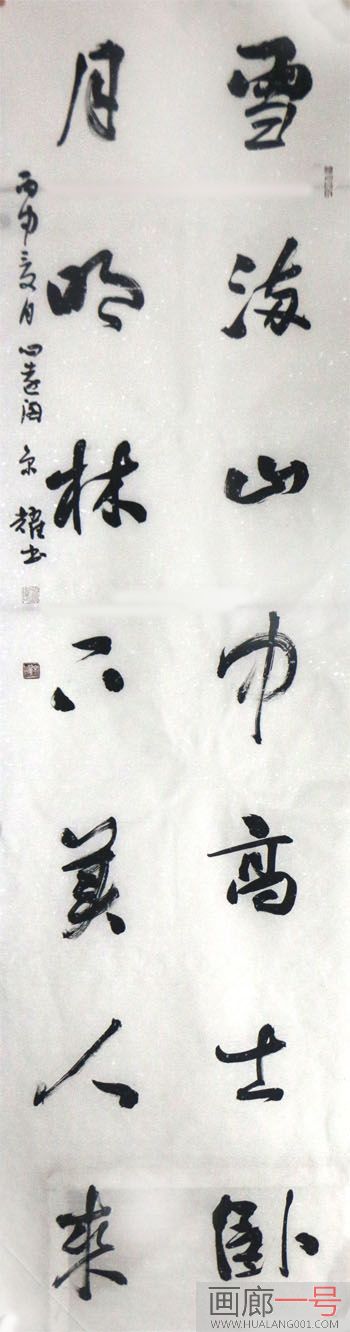 雪满山中高士卧
月明林下美人来
丙申夏月心远阁京耀书
画廊一号
WWW.HUALANG001.COM